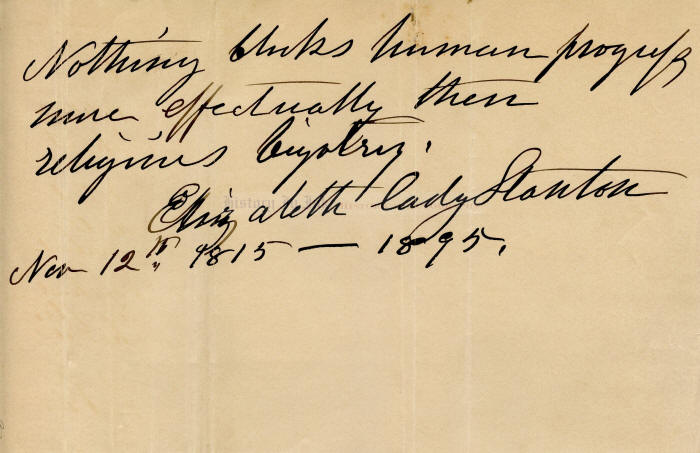 Nothing blocks human progress
more effectually then
religious bigotry.
Elizabeth Cady Stanton
Nov 12th 1815 — 1895.